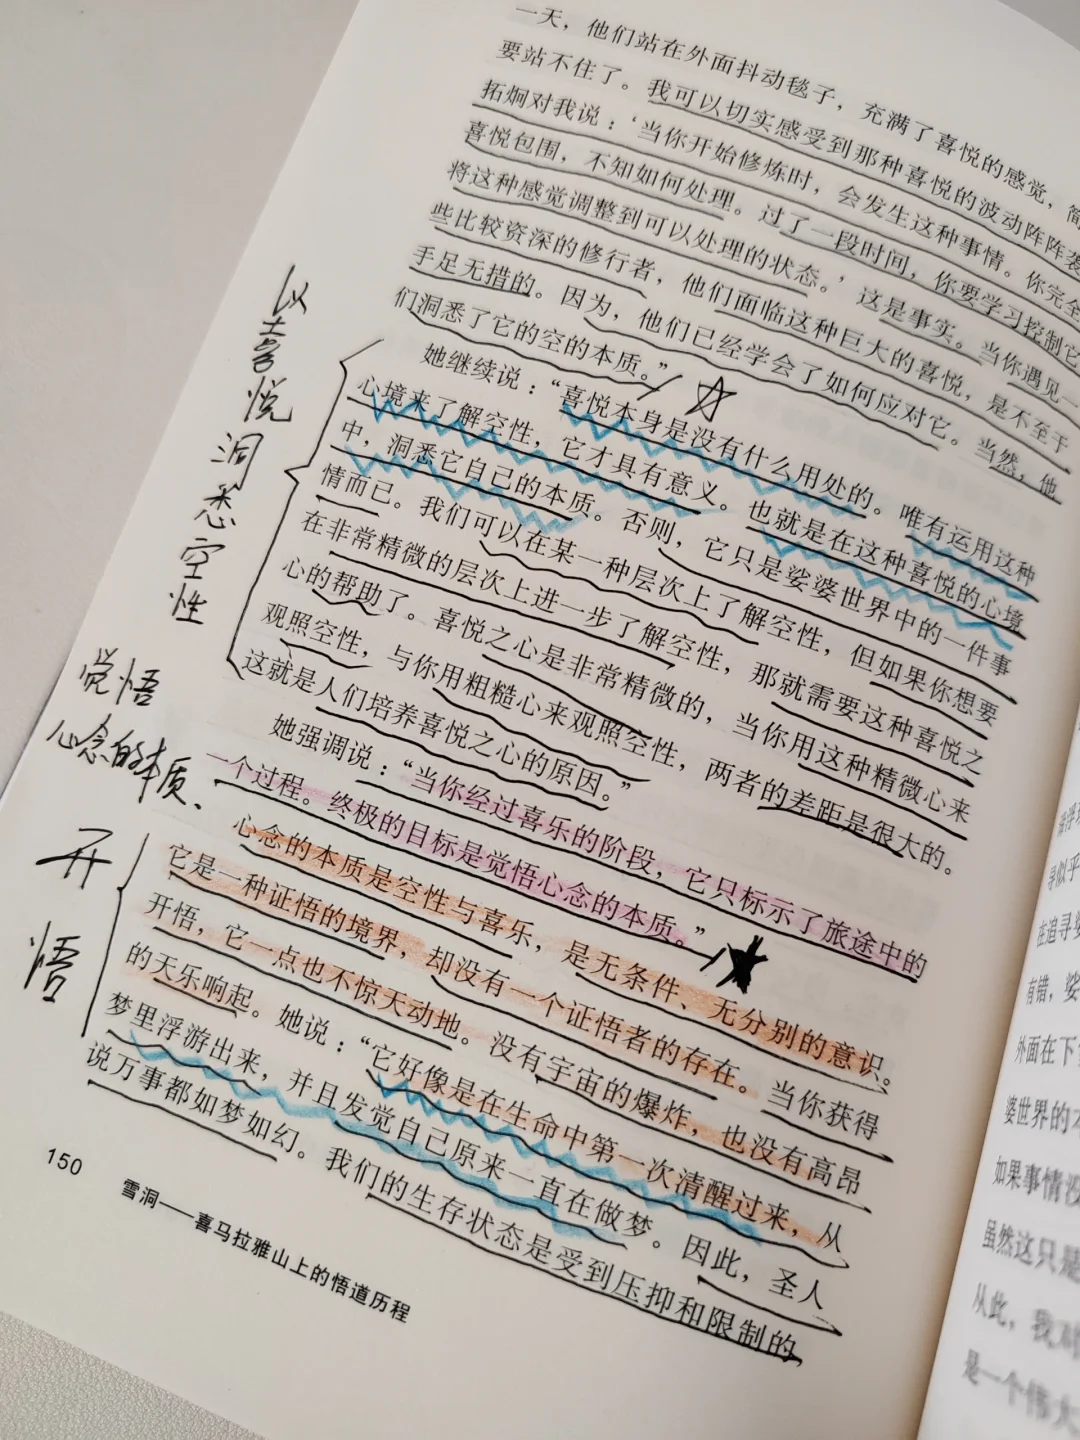 一天，他们站在外面抖动毯子，充满了喜悦的感觉，简
要站不住了。我可以切实感受到那种喜悦的波动阵阵袭
拓炯对我说：‘当你开始修炼时，会发生这种事情。你完全
喜悦包围，不知如何处理。过了一段时间，你要学习控制它
将这种感觉调整到可以处理的状态。’这是事实。当你遇见一
些比较资深的修行者，他们面临这种巨大的喜悦，是不至于
手足无措的。因为，他们已经学会了如何应对它。当然，他
们洞悉了它的空的本质。”
她继续说：“喜悦本身是没有什么用处的。唯有运用这种
心境来了解空性，它才具有意义。也就是在这种喜悦的心境
中，洞悉它自己的本质。否则，它只是娑婆世界中的一件事
情而已。我们可以在某一种层次上了解空性，但如果你想要
在非常精微的层次上进一步了解空性，那就需要这种喜悦之
心的帮助了。喜悦之心是非常精微的，当你用这种精微心来
观照空性，与你用粗糙心来观照空性，两者的差距是很大的。
这就是人们培养喜悦之心的原因。”
她强调说：“当你经过喜乐的阶段，它只标示了旅途中的
一个过程。终极的目标是觉悟心念的本质。”
心念的本质是空性与喜乐，是无条件、无分别的意识。
它是一种证悟的境界，却没有一个证悟者的存在。当你获得
开悟，它一点也不惊天动地。没有宇宙的爆炸，也没有高昂
的天乐响起。她说：“它好像是在生命中第一次清醒过来，从
梦里浮游出来，并且发觉自己原来一直在做梦。因此，圣人
说万事都如梦如幻。我们的生存状态是受到压抑和限制的，
150
雪洞——喜马拉雅山上的悟道历程
以喜悦洞悉空性
觉悟
心念的本质、
开悟
寻似乎
在追寻
有错，娑
外面在下
婆世界的本
如果事情没
虽然这只是
从此，我对
是一个伟大